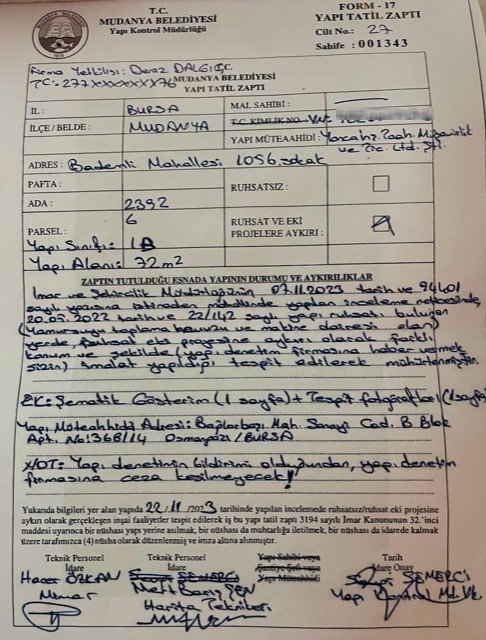 T.C.
MUDANYA BELEDİYESİ
Yapı Kontrol Müdürlüğü
FORM - 17
YAPI TATİL ZAPTI
Cilt No.: 27
Sahife : 001343
Firma Yetkilisi: Deniz DALGIÇ
TC: 277XXXXXXX76
MUDANYA BELEDİYESİ
YAPI TATİL ZAPTI
İL : BURSA
MAL SAHİBİ :
T.C. KİMLİK NO.
İLÇE / BELDE : MUDANYA
YAPI MÜTEAAHİDİ : İnş. Müşavirlik
ve Tic. Ltd. Şti.
ADRES: Bademli Mahallesi 1056. sokak
PAFTA :
RUHSATSIZ :
ADA : 2392
PARSEL : 6
RUHSAT VE EKİ
PROJELERE AYKIRI :
Yapı Sınıfı:
Yapı Alanı: 72 m²
ZAPTIN TUTULDUĞU ESNADA YAPININ DURUMU VE AYKIRILIKLAR
İmar ve Şehircilik Müdürlüğünün 07.11.2023 tarih ve 94401
sayılı yazısına istinaden mahallinde yapılan inceleme neticesinde,
20.05.2022 tarih ve 22/142 sayılı yapı ruhsatı bulunan
(Yamursuyu toplama havuzu ve makine dairesi olan)
yerde, ruhsat eki projesine aykırı olarak farklı
konum ve şekilde (yapı denetim firmasına haber vermek
sizin) imalat yapıldığı tespit edilerek mühürlenmiştir.
EK: Şematik Gösterim (1 sayfa) + Tespit fotoğrafları (1 sayfa)
Yapı Müteahhidi Adresi: Bağlarbaşı Mah. Sanayi Cad. B Blok
Apt. No: 368/14 Osmangazi/BURSA
NOT: Yapı denetimin bildirimi olduğundan, yapı denetim
firmasına ceza kesilmeyecek!
Yukarıda bilgileri yer alan yapıda 22/11/2023 tarihinde yapılan incelemede ruhsatsız/ruhsat eki projesine
aykırı olarak gerçekleşen inşai faaliyetler tespit edilerek iş bu yapı tatil zaptı 3194 sayılı İmar Kanununun 32.'inci
maddesi uyarınca bir nüshası yapı yerine asılmak, bir nüshası da muhtarlığa iletilmek, bir nüshası da idarede kalmak
üzere tarafımızca (4) nüsha olarak düzenlenmiş ve imza altına alınmıştır.
Teknik Personel
İdare
Teknik Personel
İdare
Yapı Sahibi veya
Şantiye Şefi veya
Yapı Müteahhidi
Tarih
İdare Onay
Hacer ÖZKAN
Mimar
ŞEN
Harita Teknikeri
SEMERCİ
Yapı Kontrol Md. V.